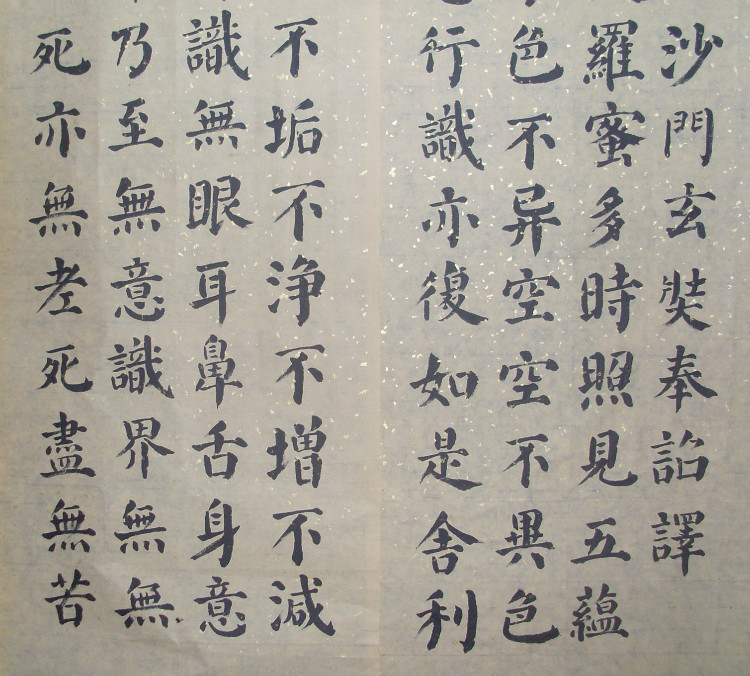 沙門玄奘奉詔譯
羅蜜多時照見五蘊
色不异空空不異色
行識亦復如是舍利
不垢不浄不增不減
識無眼耳鼻舌身意
乃至無意識界無無
死亦無老死盡無苦